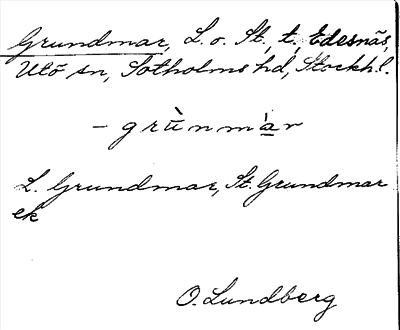 Grundmar, L. o. St., t. Edesnäs,
Utö sn, Sotholms hd, Stockh.l.
– grùnmàr
L. Grundmar, St. Grundmar
ek
O. Lundberg